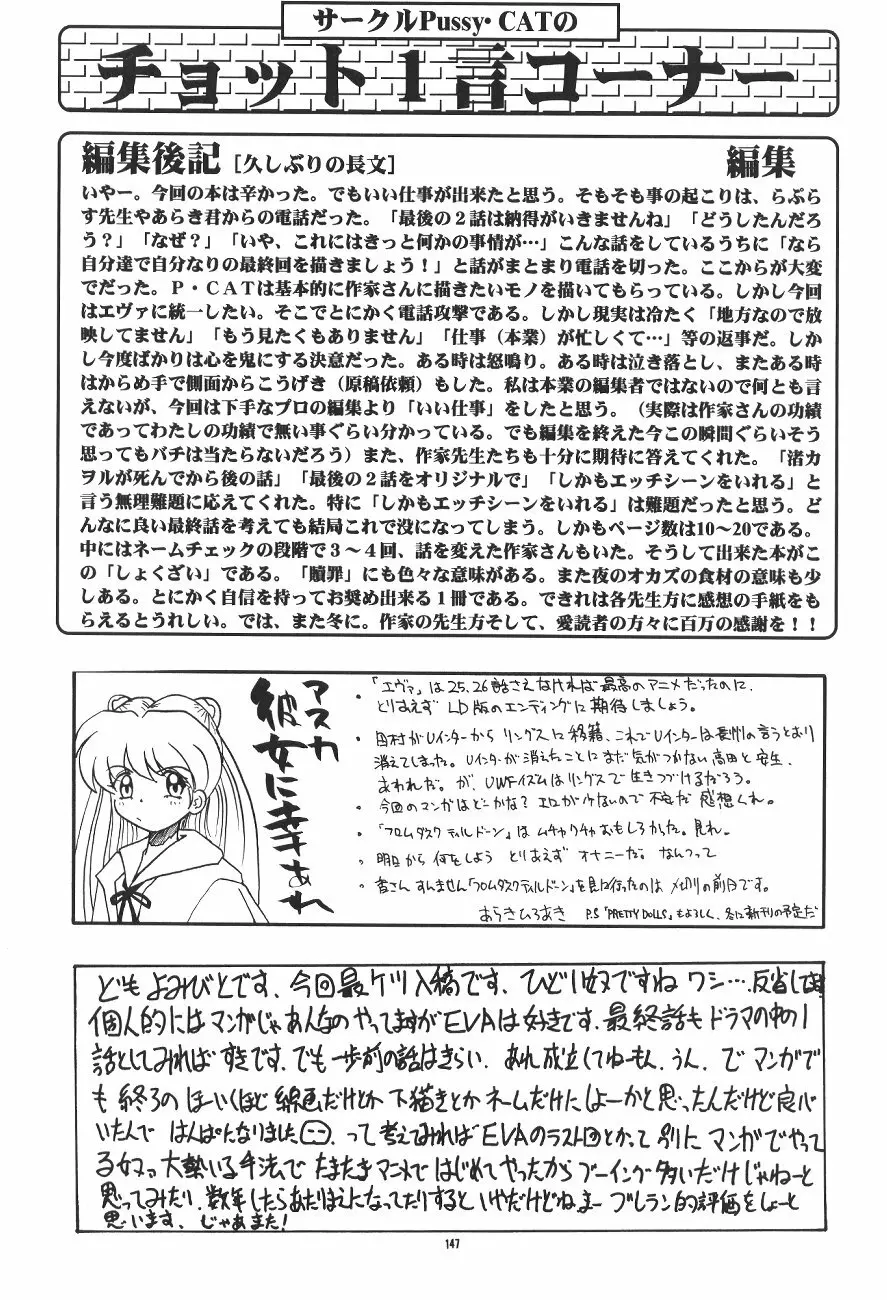 サークルPussy・CATの
チョット1言コーナー
編集後記［久しぶりの長文］ 編集
いやー。今回の本は辛かった。でもいい仕事が出来たと思う。そもそも事の起こりは、らぷら
す先生やあらき君からの電話だった。「最後の２話は納得がいきませんね」「どうしたんだろ
う？」「なぜ？」「いや、これにはきっと何かの事情が…」こんな話をしているうちに「なら
自分達で自分なりの最終回を描きましょう！」と話がまとまり電話を切った。ここからが大変
でだった。Ｐ・ＣＡＴは基本的に作家さんに描きたいモノを描いてもらっている。しかし今回
はエヴァに統一したい。そこでとにかく電話攻撃である。しかし現実は冷たく「地方なので放
映してません」「もう見たくもありません」「仕事（本業）が忙しくて…」等の返事だ。しか
し今度ばかりは心を鬼にする決意だった。ある時は怒鳴り。ある時は泣き落とし、またある時
はからめ手で側面からこうげき（原稿依頼）もした。私は本業の編集者ではないので何とも言
えないが、今回は下手なプロの編集より「いい仕事」をしたと思う。（実際は作家さんの功績
であってわたしの功績で無い事ぐらい分かっている。でも編集を終えた今この瞬間ぐらいそう
思ってもバチは当たらないだろう）また、作家先生たちも十分に期待に答えてくれた。「渚カ
ヲルが死んでから後の話」「最後の２話をオリジナルで」「しかもエッチシーンをいれる」と
言う無理難題に応えてくれた。特に「しかもエッチシーンをいれる」は難題だったと思う。ど
んなに良い最終話を考えても結局これで没になってしまう。しかもページ数は10～20である。
中にはネームチェックの段階で３～４回、話を変えた作家さんもいた。そうして出来た本がこ
の「しょくざい」である。「贖罪」にも色々な意味がある。また夜のオカズの食材の意味も少
しある。とにかく自信を持ってお奨め出来る１冊である。できれは各先生方に感想の手紙をも
らえるとうれしい。では、また冬に。作家の先生方そして、愛読者の方々に百万の感謝を！！
アスカ
彼女に幸あれ
・「エヴァ」は25,26話さえなければ最高のアニメだったのに、
とりあえず LD版のエンディングに期待しましょう。
・田村がUインターから リングスに移籍、これでUインターは長州の言うとおり
消えてしました。Uインターが消えたことにまだ気がつかない高田と安生、
あわれだ。が、UWFイズムはリングスで生きつづけるだろう。
・今回のマンガはどーかな？エロが少ないので不安だ 感想くれ。
・「フロムダスクティルドーン」は ムチャクチャおもしろかった。見れ。
・明日から 何をしよう とりあえず オナニーだ。なんつって
・皆さん すんません「フロムダスクティルドーン」を見に行ったのは 〆切りの前日です。
あらきひろあき P.S「PRETTY DOLLS」もよろしく、冬に新刊の予定だ
ども よみびとです、今回最ケツ入稿です、ひどい奴ですね ワシ…反省してます
個人的にはマンガじゃあんなのやってますがEVAは好きです．最終話もドラマの中の1
話としてみればすきです、でも一歩前の話はきらい．あれ成立してねーもん、うん．で マンガで
も 終ろの ほーいくほど 線画だけとか 下描きとか ネームだけにしよーかと思ったんだけど良心
いたんで はんぱになりました って 考えてみればEVAのラスト回とかって 別に マンガでやって
る奴ァ大勢いる手法で たまたまアニメで はじめてやったから ブーイング多いだけじゃねーと
思ってみたり．数年したらあたりまえになってたりすると いやだけどねまー プレラン的評価をしよーと
思います、じゃあまた！
147